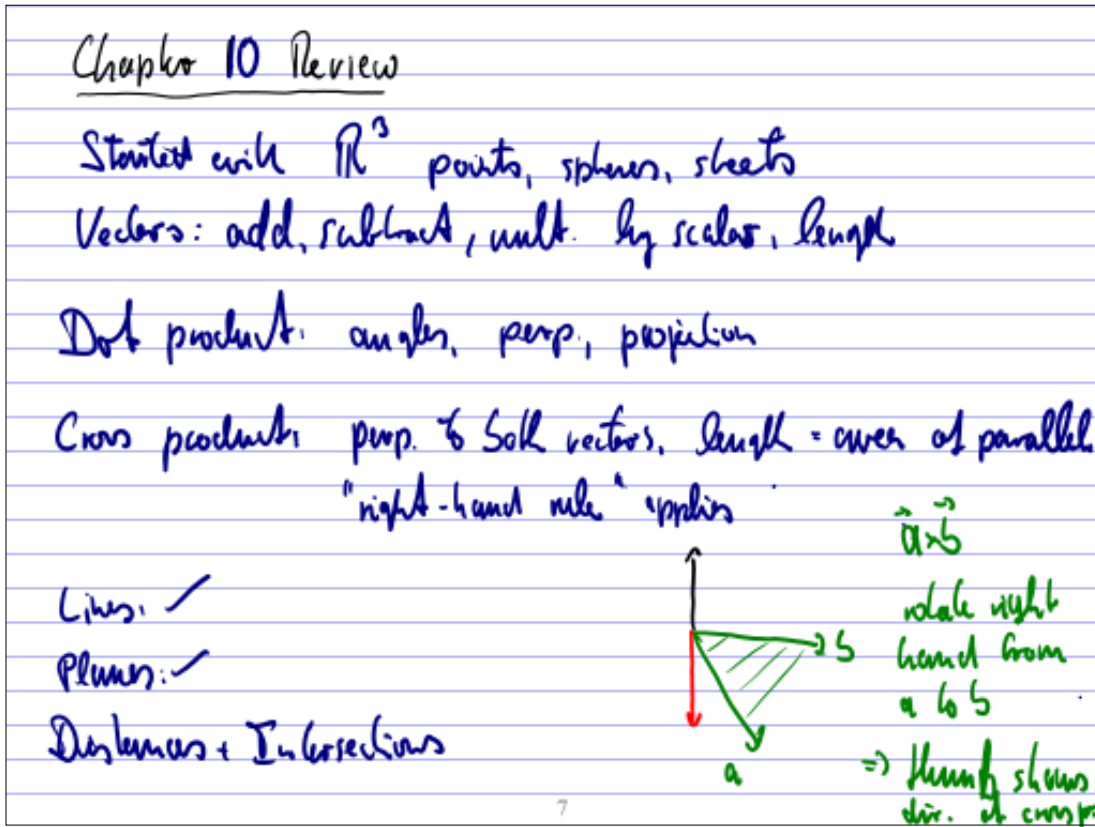 Chapter 10 Review
Started with ℝ³ points, spheres, sheets
Vectors: add, subtract, mult. by scalar, length
Dot product: angles, perp., projection
Cross product: perp. to both vectors, length = area of parallel
"right-hand rule" applies
Lines: ✓
Planes: ✓
Distances + Intersections
a⃗×b⃗
rotate right
hand from
a to b
⇒ thumb shows
dir. of crossp
b
a
7